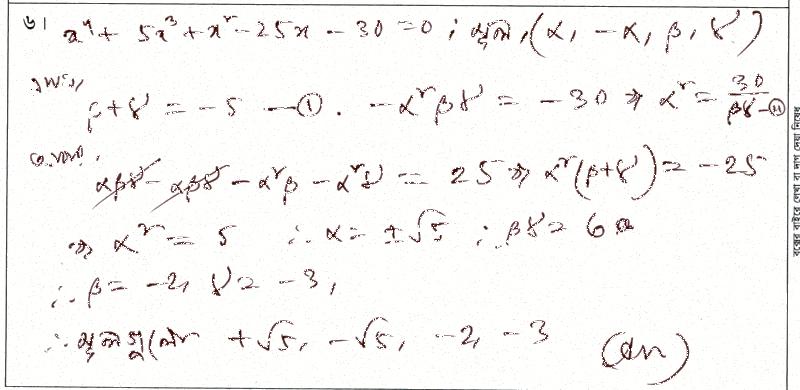 ৬। x⁴ + 5x³ + x² - 25x - 30 = 0 ; মূল, (α, -α, β, γ)
এখন, β+γ = -5 —① . -α²βγ = -30 ⇒ α² = 30/βγ —⑪
αβγ - αβγ - α²β - α²γ = 25 ⇒ α²(β+γ) = -25
⇒ α² = 5 ∴ α = ±√5 ; βγ = 6
∴ β = -2, γ = -3,
∴ মূলগুলি +√5, -√5, -2, -3 (Ans)
বক্সের বাইরে লেখা বা দাগ দেয়া নিষেধ